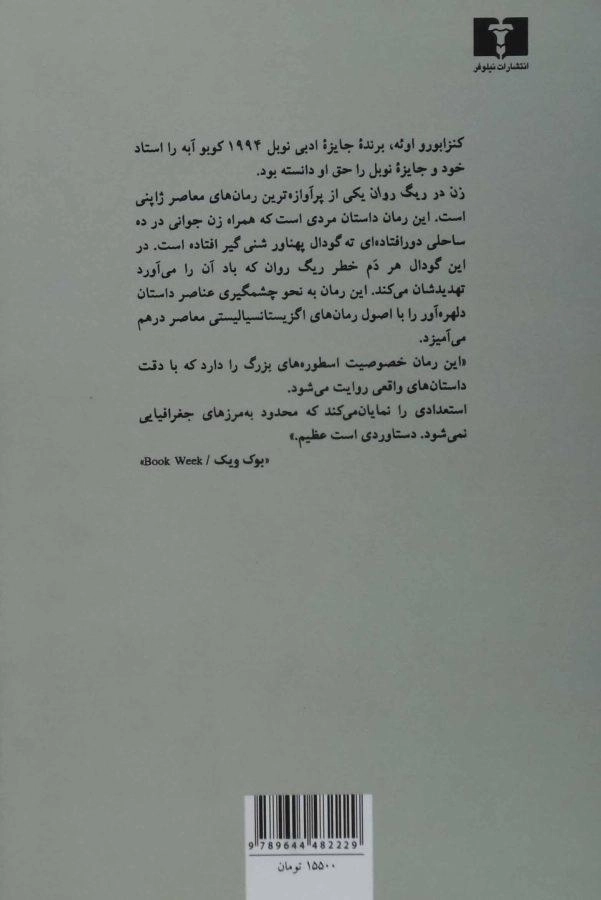 انتشارات نیلوفر
کنزابورو اوئه، برندهٔ جایزهٔ ادبی نوبل ۱۹۹۴ کوبو آبه را استاد
خود و جایزهٔ نوبل را حق او دانسته بود.
زن در ریگ روان یکی از پرآوازه‌ترین رمان‌های معاصر ژاپنی
است. این رمان داستان مردی است که همراه زن جوانی در ده
ساحلی دورافتاده‌ای ته گودال پهناور شنی گیر افتاده است. در
این گودال هر دَم خطر ریگ روان که باد آن را می‌آورد
تهدیدشان می‌کند. این رمان به نحو چشمگیری عناصر داستان
دلهره‌آور را با اصول رمان‌های اگزیستانسیالیستی معاصر درهم
می‌آمیزد.
«این رمان خصوصیت اسطوره‌های بزرگ را دارد که با دقت
داستان‌های واقعی روایت می‌شود.
استعدادی را نمایان‌می‌کند که محدود به‌مرزهای جغرافیایی
نمی‌شود. دستاوردی است عظیم.»
«بوک ویک / Book Week»
9 789644 482229
۱۵۵۰۰ تومان